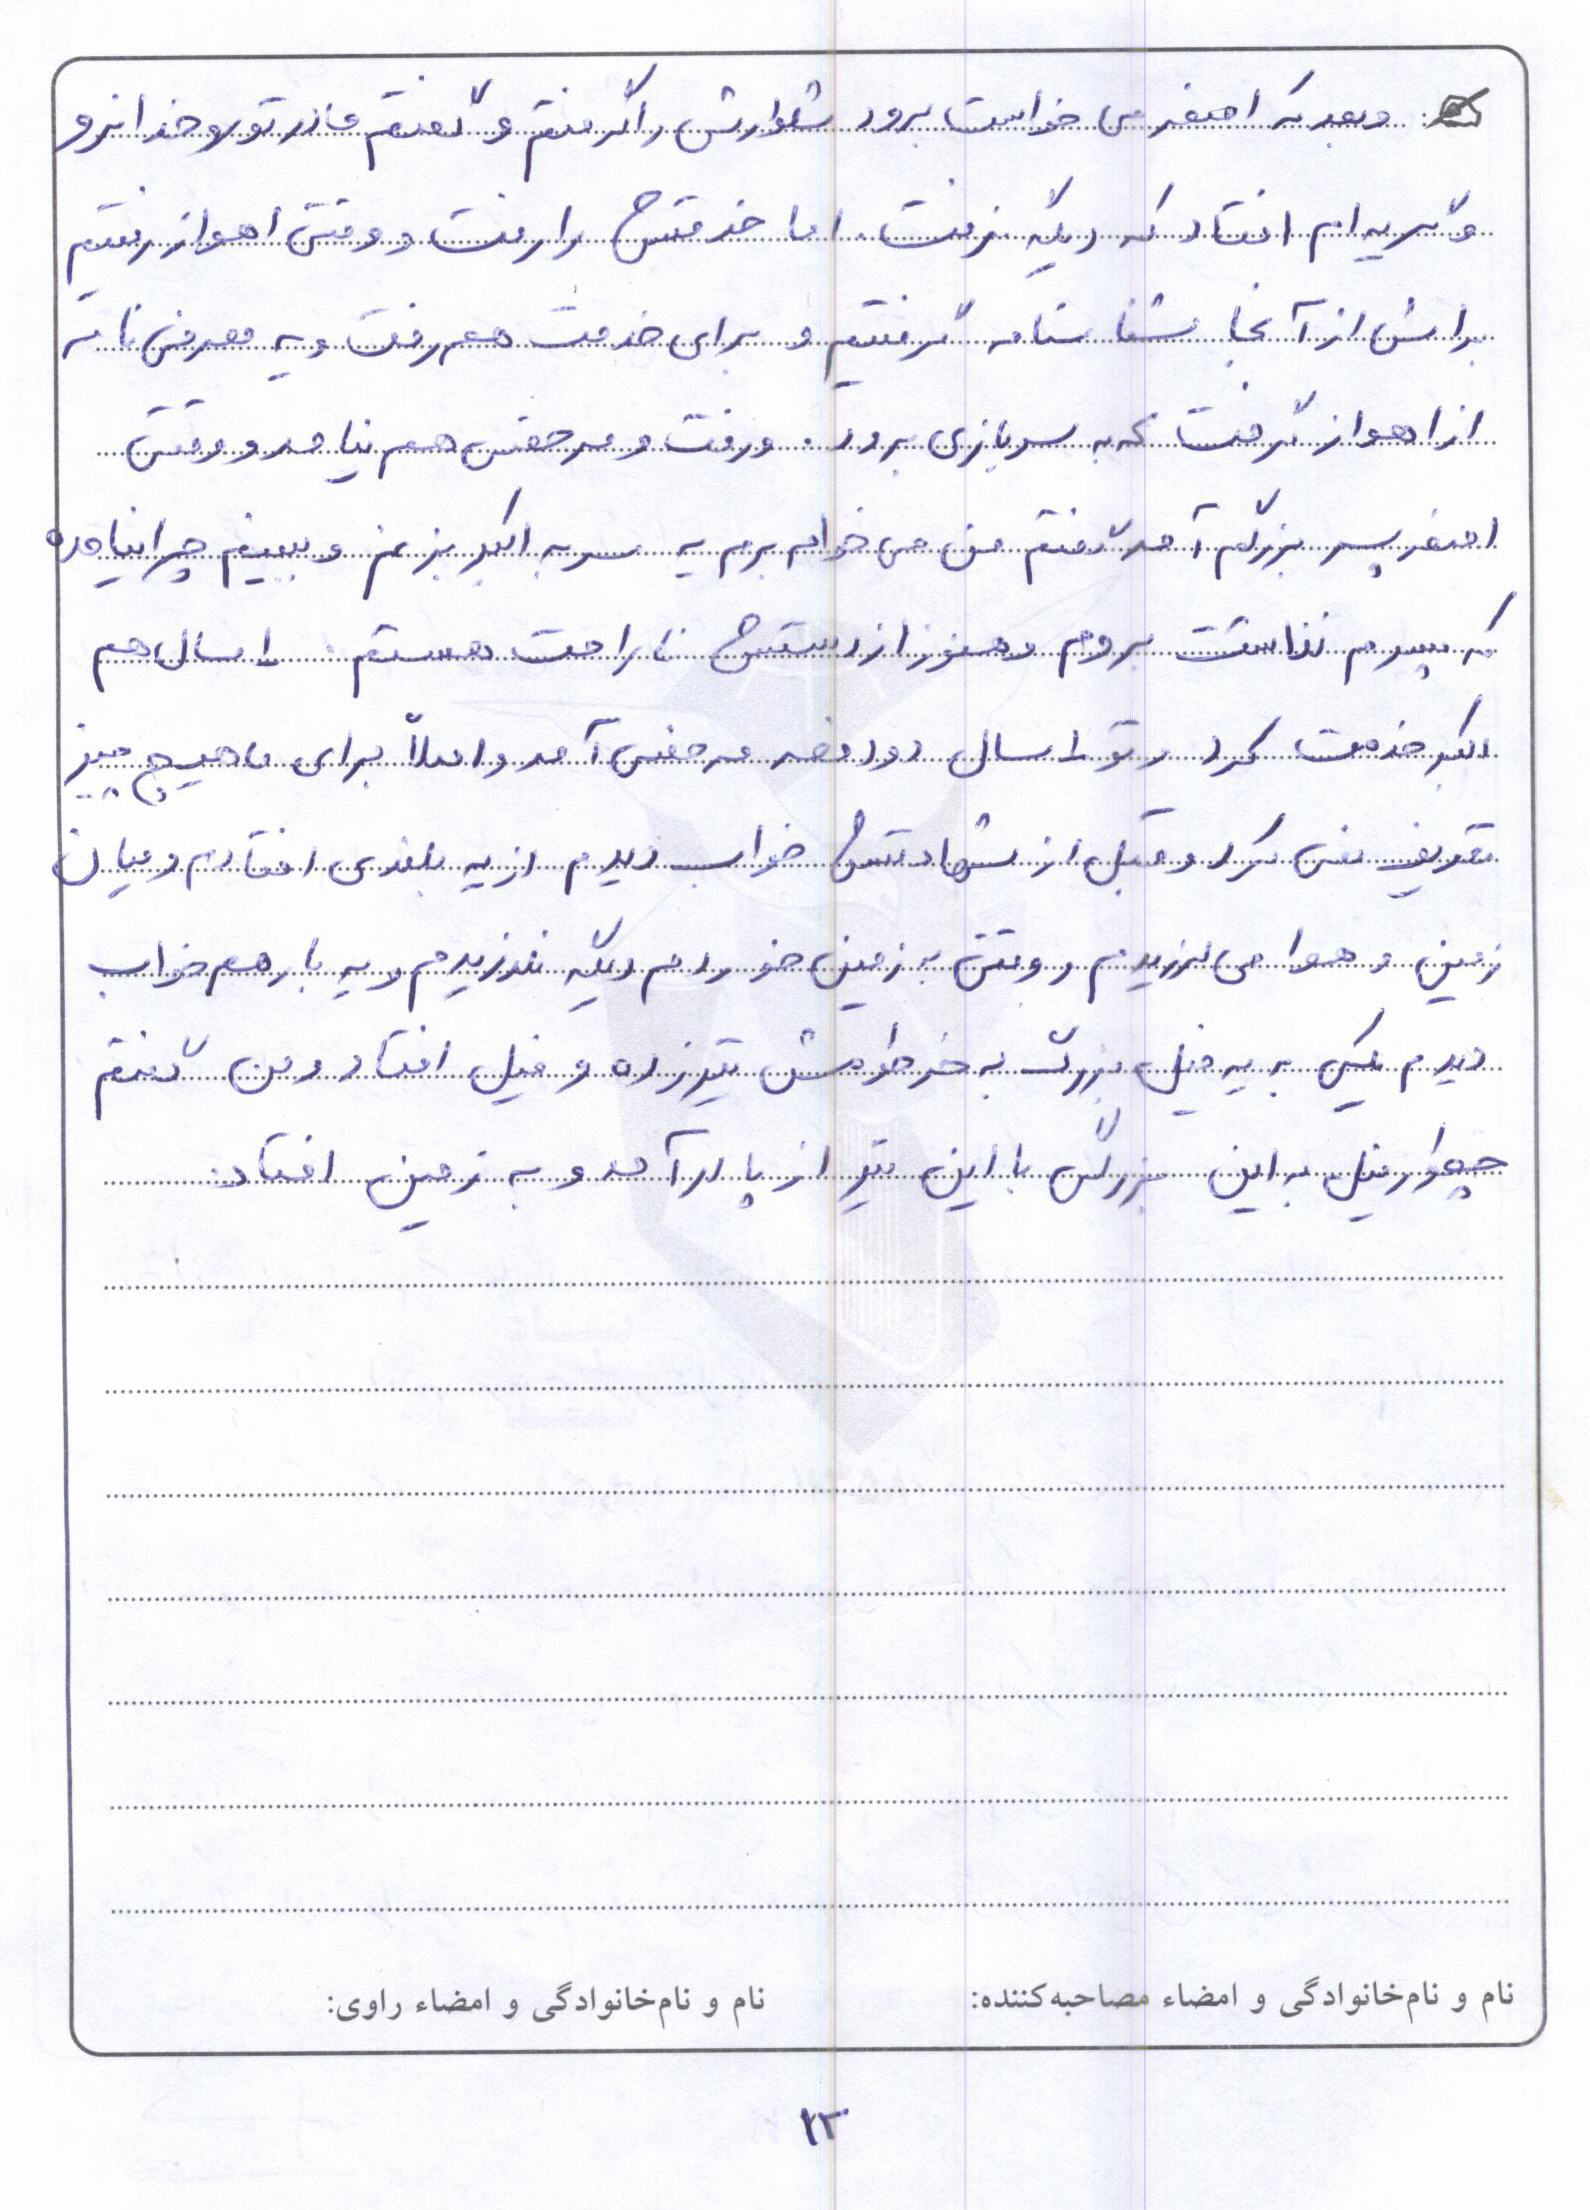 وبعد که اصغر می خواست برود شلوارش را گرفتم و گفتم مادر تو رو خدا نرو
و گریه ام افتاد که دیگه نرفت. اما خدمتش را رفت و وقتی اهواز رفتیم
براش از آنجا شناسنامه گرفتیم و برای خدمت هم رفت و یه معرفی نامه
از اهواز گرفت که به سربازی برود. و رفت و مرخصی هم نیامد و وقتی
اصغر پسر بزرگم آمد گفتم من می خوام برم یه سر به اکبر بزنم و ببینم چرا نیامده
که پسرم نذاشت بروم و هنوز از دستش ناراحت هستم. ۱ سال هم
اکبر خدمت کرد و تو ۱ سال دو دفعه مرخصی آمد و اصلاً برای ما هیچ چیز
تعریف نمی کرد و قبل از شهادتش خواب دیدم از یه بلندی افتادم و میان
زمین و هوا می لرزیدم و وقتی به زمین خوردم دیگه نلرزیدم و یه بار هم خواب
دیدم یکی به یه فیل بزرگ به خرطومش تیر زده و فیل افتاد و من گفتم
چطور فیل به این بزرگی با این تیر از پا درآمد و به زمین افتاد.
نام و نام‌خانوادگی و امضاء مصاحبه‌کننده: نام و نام‌خانوادگی و امضاء راوی:
۱۳